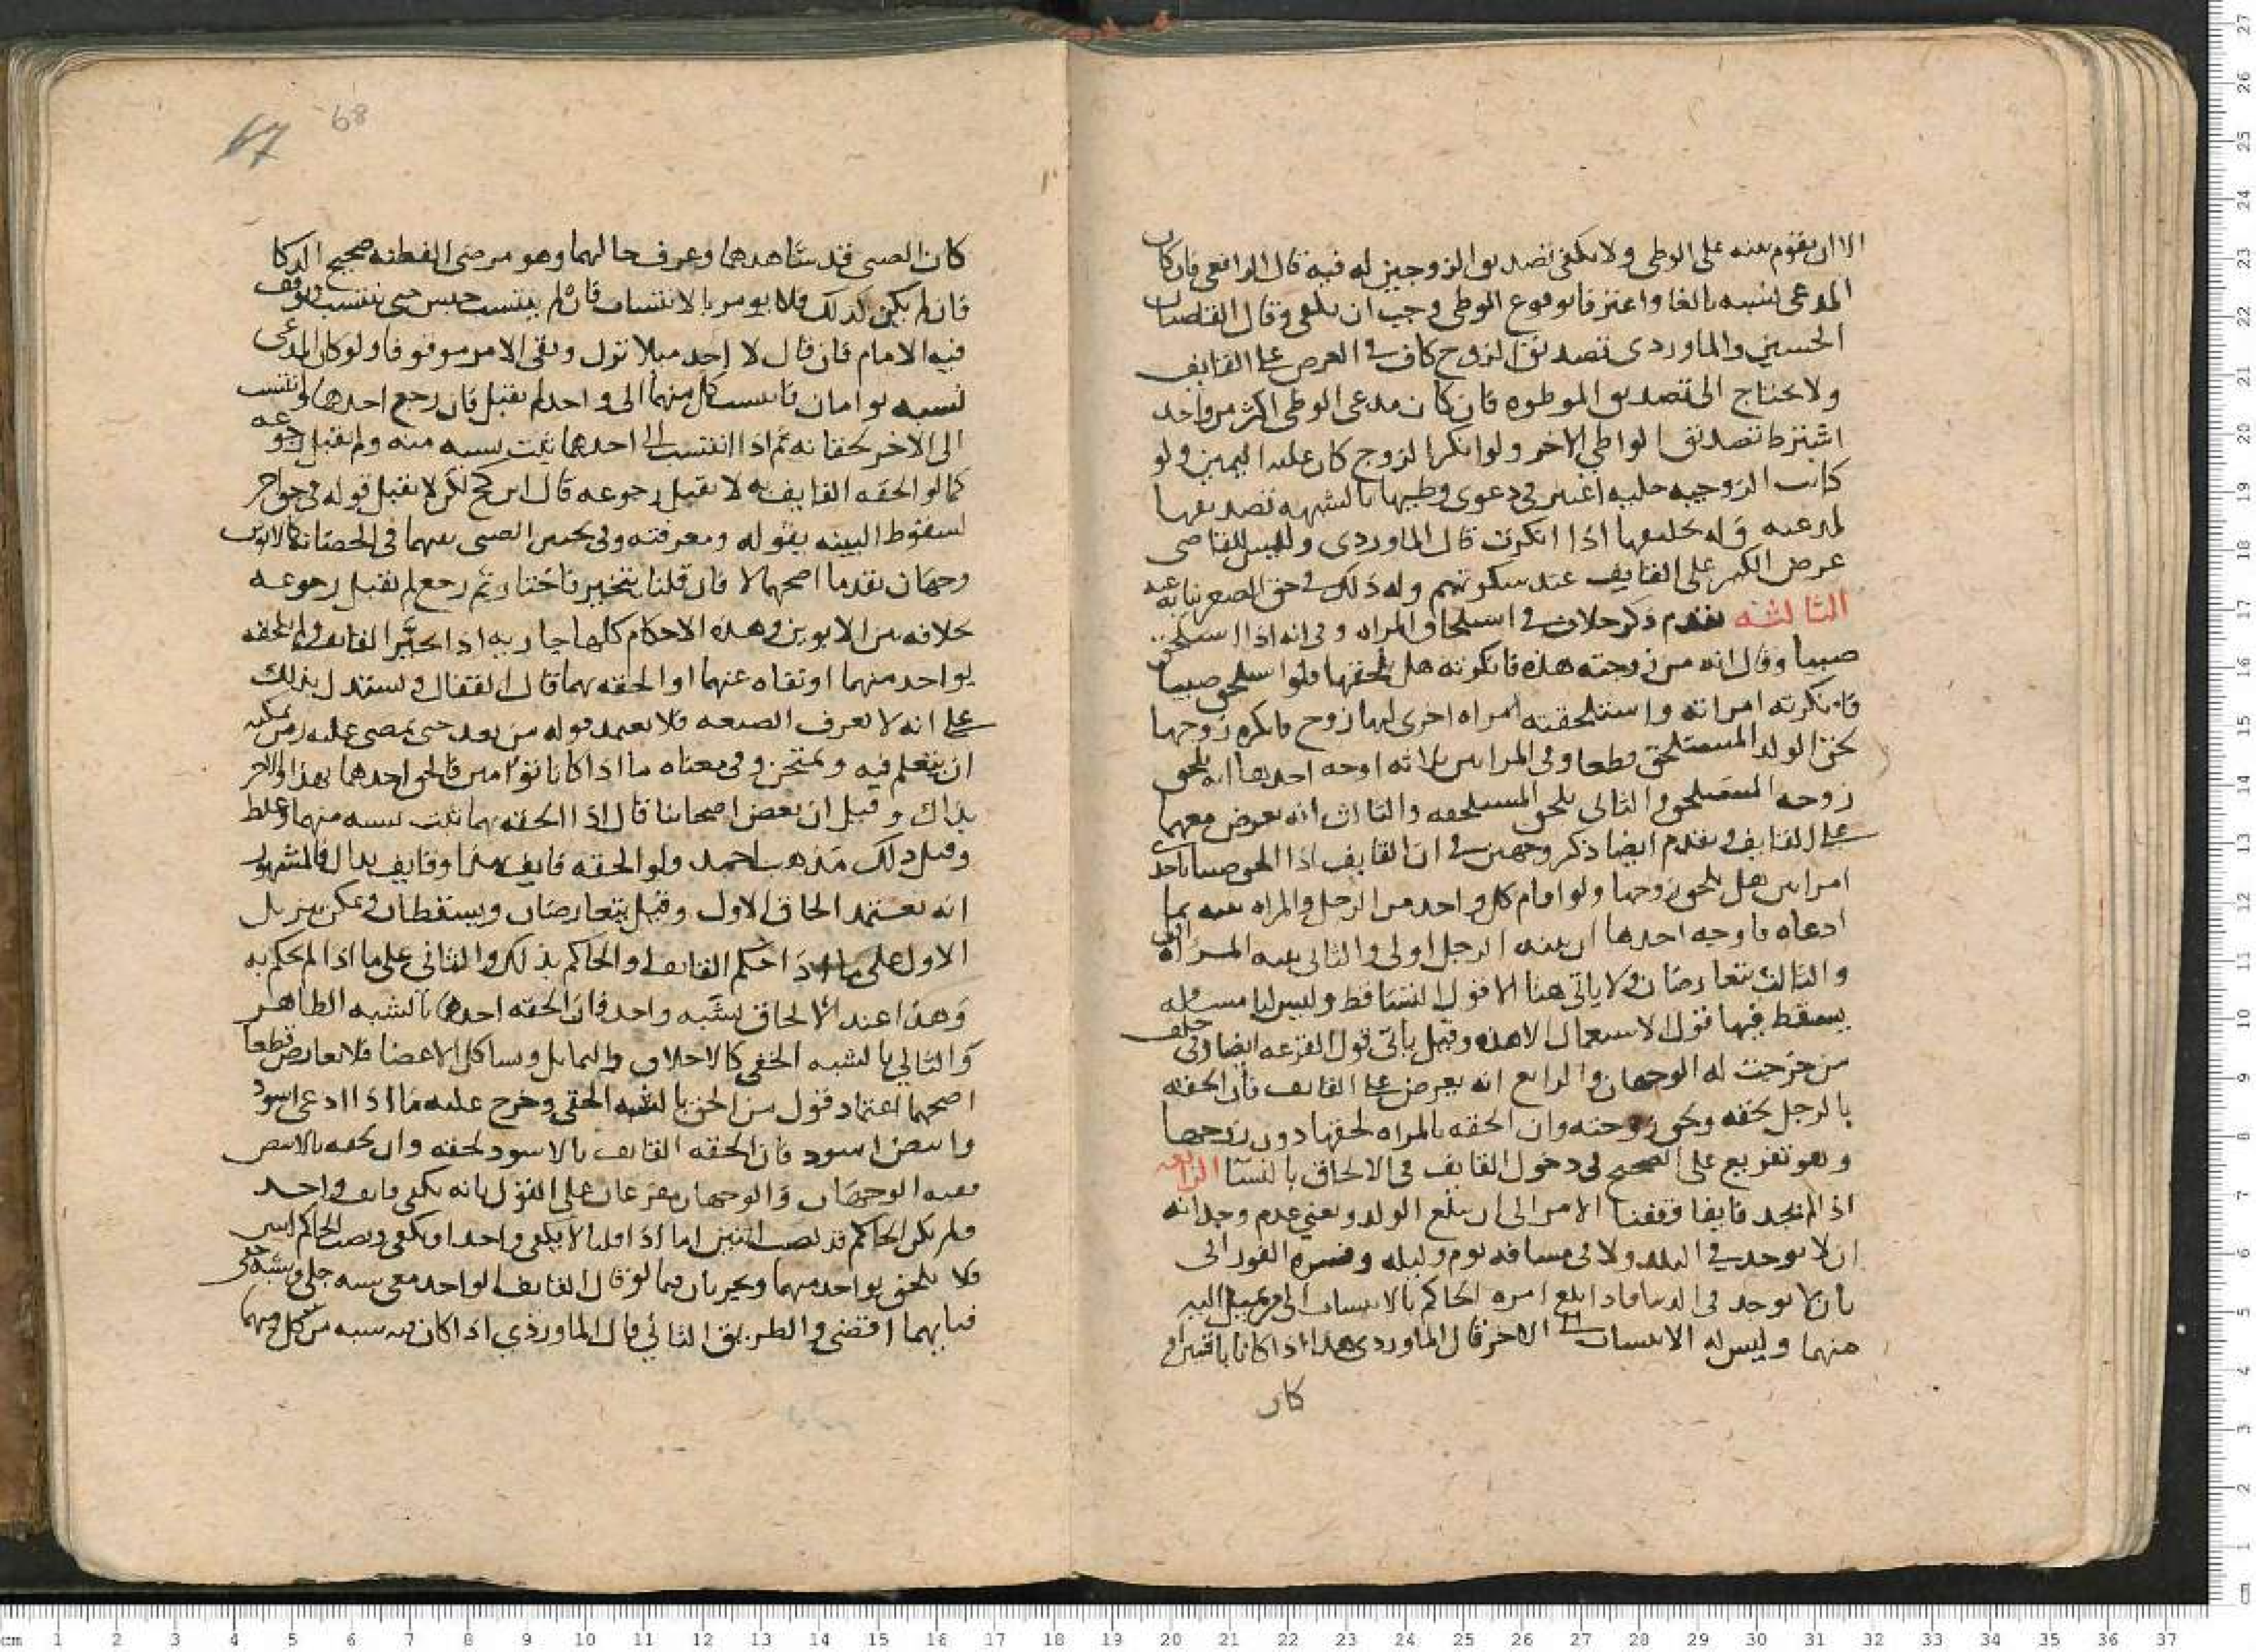 الا ان يقوم بينه على الوطى ولا يكفى تصديق الزوجين له فيه قال الرافعى فان كان
المدعى نسبه بالغا واعترفا بوقوع الوطى وجب ان يكفى وقال القاضيان
الحسين والماوردى تصديق الزوج كاف فى العرض على القايف
ولا يحتاج الى تصديق الموطوه فان كان مدعى الوطى اكثر من واحد
اشترط تصديق الواطى الاخر ولو انكر الزوج كان عليه اليمين ولو
كانت الزوجيه خليه اعتبر فى دعوى وطيها بالشبهه تصديقها
لمدعيه وله تحليفها اذا انكرت قال الماوردى وليس للقاضى
عرض الكبير على القايف عند سكوتهم وله ذلك فى حق الصغير نيابه عنه
الثالثه تقدم ذكر خلاف فى استلحاق المراه وفى انه اذا استلحق
صبيا وقال انه من زوجته هذه فانكرته هل يلحقها فلو استلحق صبيا
فانكرته امراته واستلحقته امراه اخرى لها زوج فانكره زوجها
لحق الولد المستلحق قطعا وفى المراتين ثلاثه اوجه احدها انه يلحق
زوجه المستلحق والثانى يلحق المستلحقه والثالث انه يعرض معهما
على القايف وتقدم ايضا ذكر وجهين فى ان القايف اذا الحق صبيا باحد
امراتين هل يلحق زوجها ولو اقام كل واحد من الرجل والمراه بينه بما
ادعاه فاوجه احدها ان بينه الرجل اولى والثانى بينه المراه اولى
والثالث يتعارضان ولا ياتى هنا الا قول التساقط وليس لنا مسئله
يسقط فيها قول الاستعمال الا هذه وقيل ياتى قول القرعه ايضا وفى حلف
من خرجت له الوجهان والرابع انه يعرض على القايف فان الحقه
بالرجل لحقه ولحق زوجته وان الحقه بالمراه لحقها دون زوجها
وهو تفريع على الصحيح فى دخول القايف فى الالحاق بالنسا الرابعه
اذا لم نجد قايفا وقفنا الامر الى ان يبلغ الولد ونعنى بعدم وجدانه
ان لا يوجد فى البلد ولا فى مسافه يوم وليله وفسره الفورانى
بان لا يوجد فى الدنيا فاذا بلغ امره الحاكم بالانتساب الى من يميل اليه
منهما وليس له الانتساب الى الاخر قال الماوردى هذا اذا كانا باقيين او
كان
كان الصبى قد شاهدهما وعرف حالهما وهو مرضى الفطنه صحيح الذكا
فان لم يكن كذلك فلا يومر بالانتساب فان لم ينتسب حبس حتى ينتسب وتوقف
فيه الامام فان قال لا اجد ميلا ترك وبقى الامر موقوفا ولو كان المدعى
نسبه توامان فانتسب كل منهما الى واحد لم يقبل فان رجع احدهما وانتسب
الى الاخر لحقا به ثم اذا انتسب الى احدهما ثبت نسبه منه ولم يقبل رجوعه
كما لو الحقه القايف به لا يقبل رجوعه قال ابن كج لكن لا يقبل قوله فى حق اخر
لسقوط البينه بقوله ومعرفته وفى تخيير الصبى بينهما فى الحضانه كالابوين
وجهان تقدما اصحهما لا فان قلنا يتخير فاختار ثم رجع لم يقبل رجوعه
بخلافه بين الابوين وهذه الاحكام كلها جاريه اذا تحير القايف ولم يلحقه
بواحد منهما او نفاه عنهما او الحقه بهما قال القفال ويستدل بذلك
على انه لا يعرف الصنعه فلا يعتمد قوله من بعد حتى يمضى عليه زمن يمكنه
ان يتعلم فيه ويمتحن وفى معناه ما اذا كانا توامين فالحق احدهما بهذا والاخر
بذاك وقيل ان بعض اصحابنا قال اذا الحقه بهما ثبت نسبه منهما وغلط
وقيل ذلك مذهب احمد ولو الحقه قايف بهذا وقايف بذاك فالمشهور
انه يعتمد الحاق الاول وقيل يتعارضان ويسقطان ويمكن تنزيل
الاول على ما اذا حكم القايف او الحاكم بذلك والثانى على ما اذا لم يحكم به
وهذا عند الالحاق بشبه واحد فان الحقه احدهما بالشبه الظاهر
والثانى بالشبه الخفى كالاخلاق والشمايل وتشاكل الاعضا فلا تعارض قطعا
اصحهما اعتماد قول من الحق بالشبه الخفى وخرج عليه ما اذا ادعى اسود
وابيض اسود فان الحقه القايف بالاسود لحقه وان لحقه بالابيض
ففيه الوجهان والوجهان مفرعان على القول بانه يكفى قايف واحد
ولم يكن الحاكم قد نصب اثنين اما اذا قلنا لا يكفى واحد او يكفى ونصب الحاكم اثنين
فلا يلحق بواحد منهما ويجريان فيما لو قال القايف الواحد معى شبه جلى وشبه خفى
فبايهما اقضى والطريق الثانى قال الماوردى اذا كان فيه شبه من كل منهما